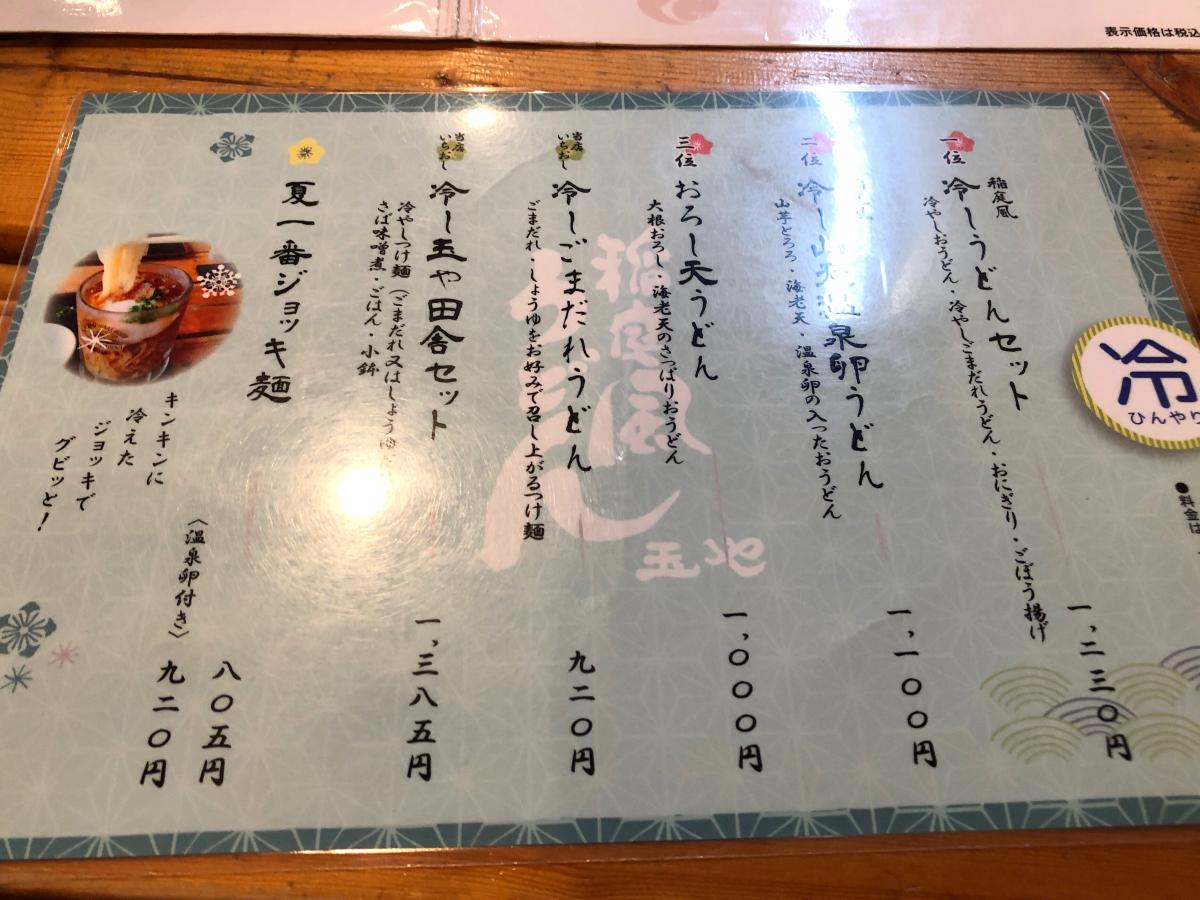 表示価格は税込
冷
ひんやり
●料金は
一位
稲庭風
冷しうどんセット
冷やしおうどん・冷やしごまだれうどん・おにぎり・ごぼう揚げ
一、二三〇円
二位
冷し山天温泉卵うどん
山芋とろろ・海老天・温泉卵の入ったおうどん
一、一〇〇円
三位
おろし天うどん
大根おろし・海老天のさっぱりおうどん
一、〇〇〇円
当店いちおし
冷しごまだれうどん
ごまだれ、しょうゆをお好みで召し上がるつけ麺
九二〇円
当店いちおし
冷し玉や田舎セット
冷やしつけ麺（ごまだれ又はしょうゆ
さば味噌煮・ごはん・小鉢
一、三八五円
夏一番ジョッキ麺
八〇五円
〈温泉卵付き〉
九二〇円
キンキンに
冷えた
ジョッキで
グビッと！
稲庭風
うどん
玉や